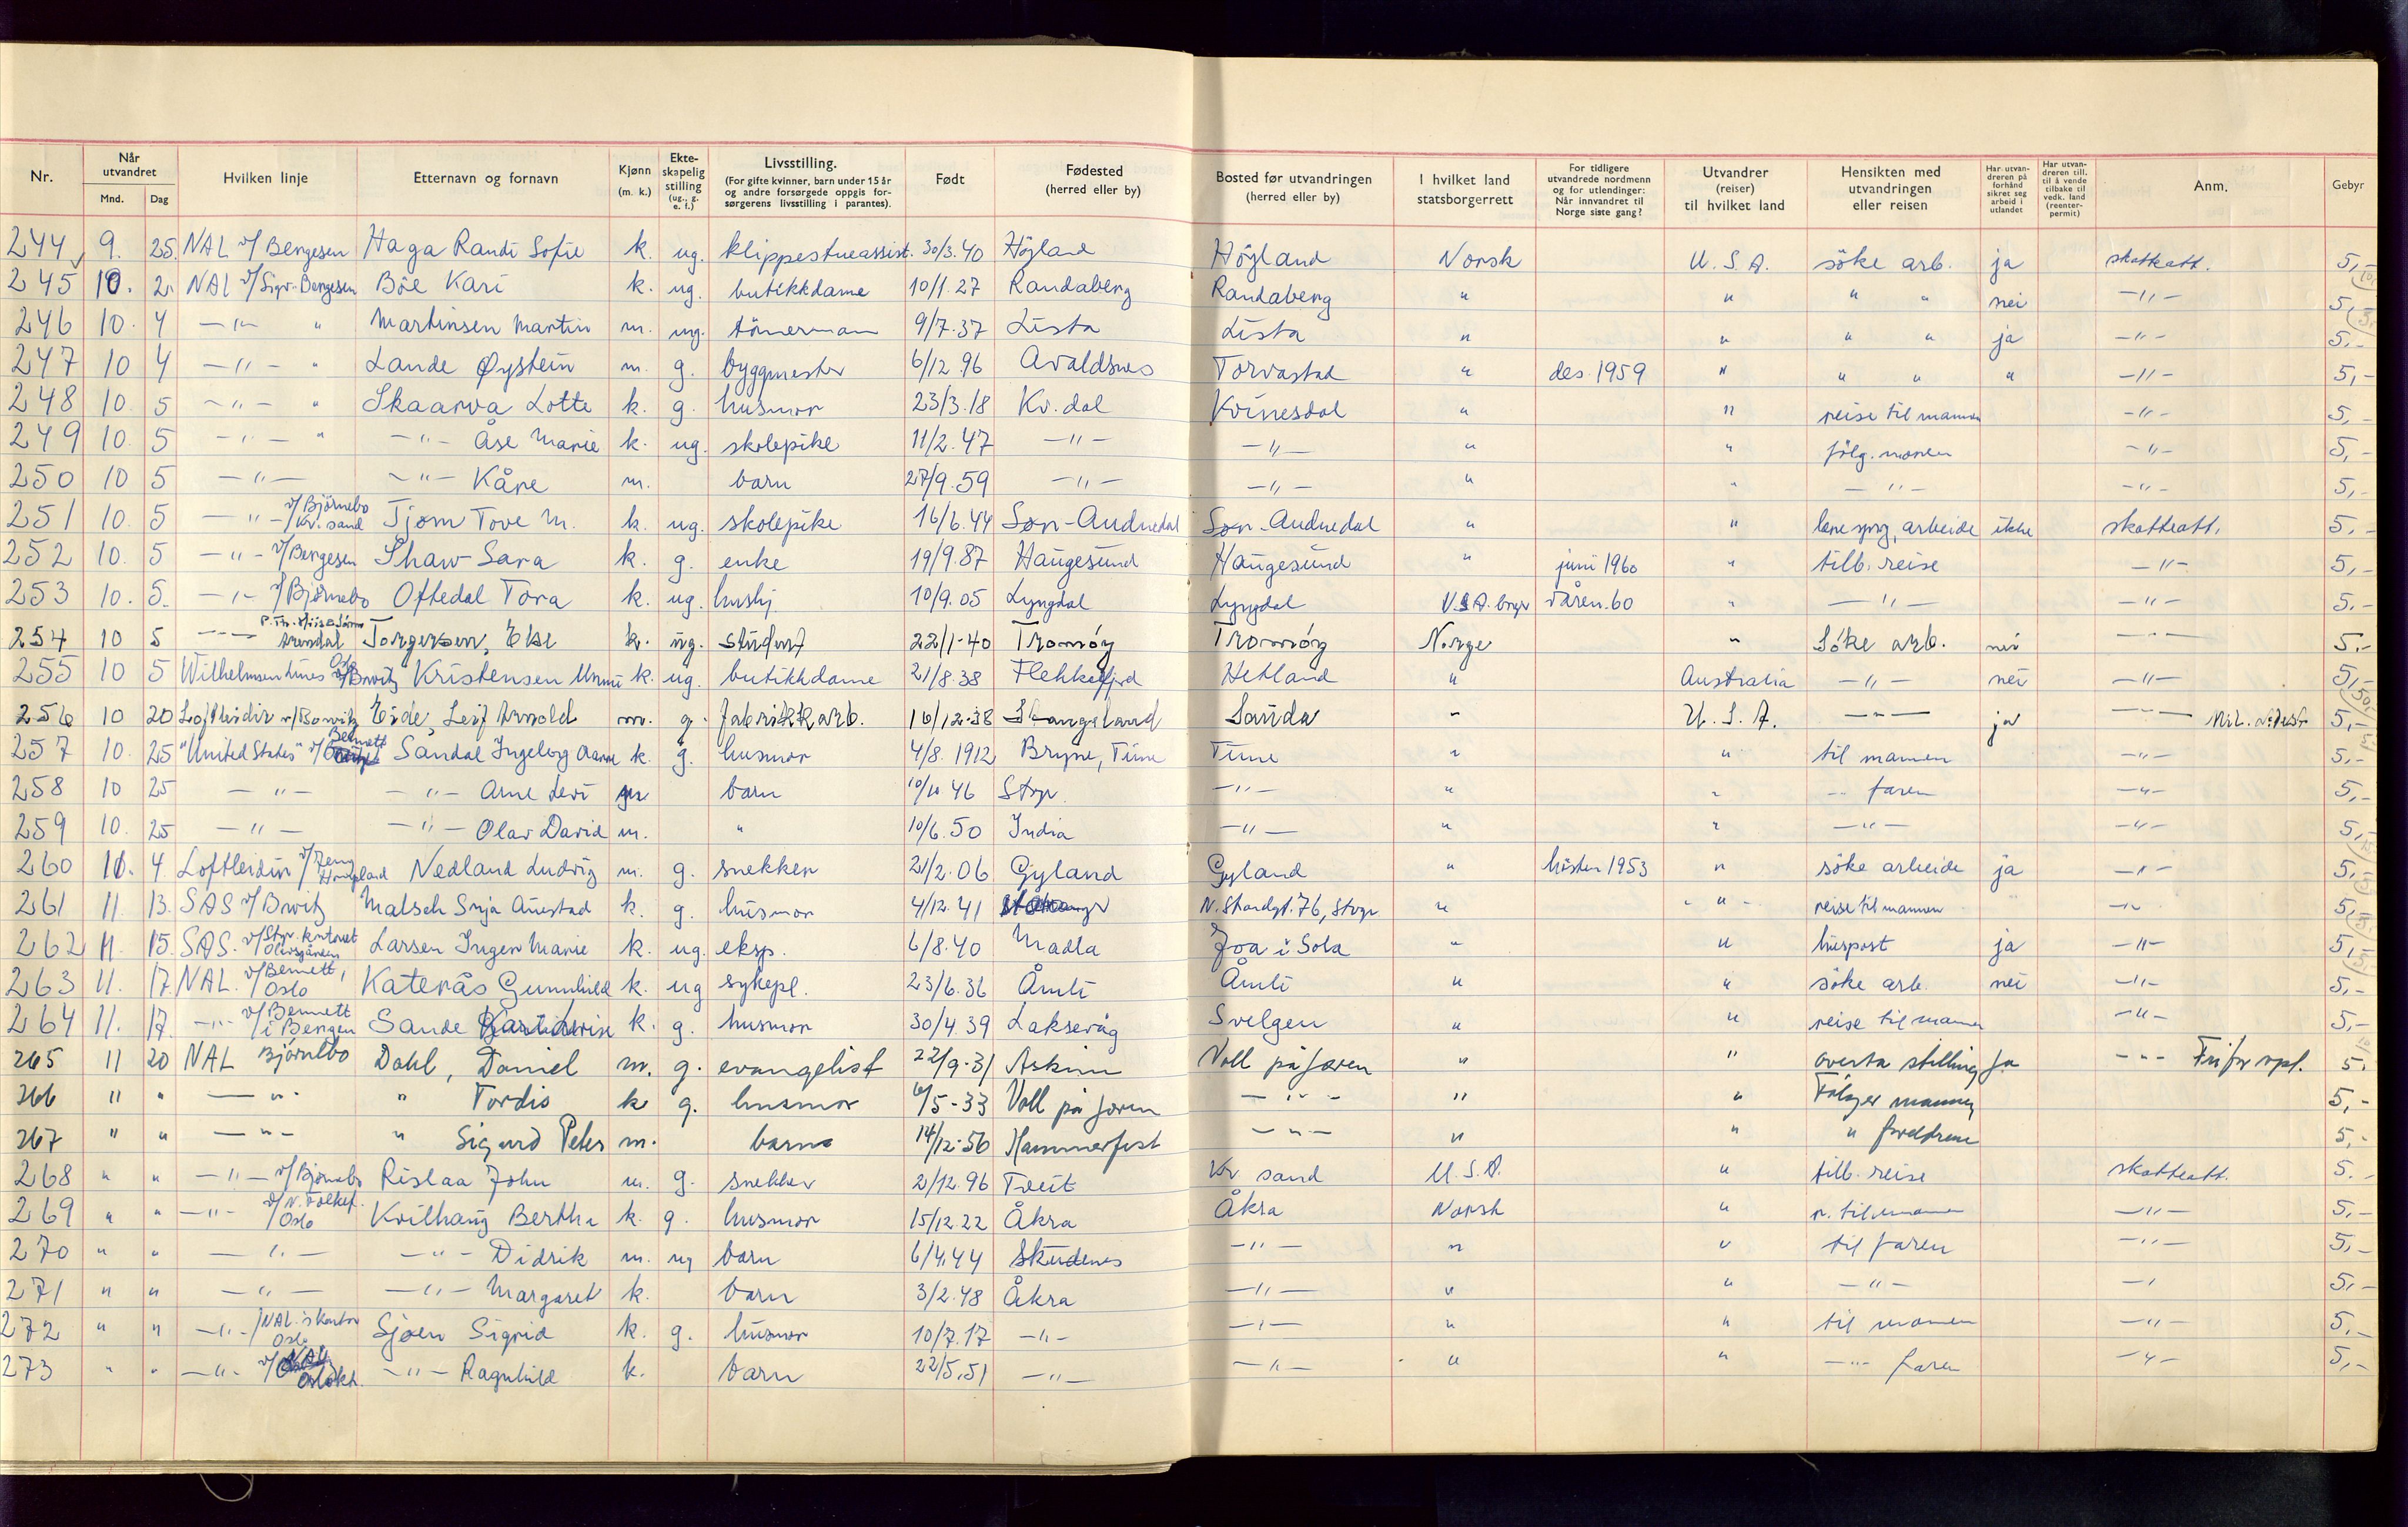 Nr. Når utvandret Mnd. Dag Hvilken linje Etternavn og fornavn Kjønn (m. k.) Ekteskapelig stilling (ug., g. e. f.) Livsstilling. (For gifte kvinner, barn under 15 år og andre forsørgede oppgis forsørgerens livsstilling i parantes). Født Fødested (herred eller by) Bosted før utvandringen (herred eller by) I hvilket land statsborgerrett For tidligere utvandrede nordmenn og for utlendinger: Når innvandret til Norge siste gang? Utvandrer (reiser) til hvilket land Hensikten med utvandringen eller reisen Har utvandreren på forhånd sikret seg arbeid i utlandet Har utvandreren till. til å vende tilbake til vedk. land (reenterpermit) Anm. Gebyr
244 9. 25. NAL v/ Bergesen Haga Randi Sofie k. ug. klippestueassist. 30/3.40 Høyland Høyland Norsk U.S.A. söke arb. ja skatteatt. 5,-
245 10. 2. NAL v/ Sigv. Bergesen Böe Kari k. ug. butikkdame 10/1.27 Randaberg Randaberg " " " " nei -"- 5,-
246 10. 4 -"- " Martinsen Martin m. ug. tömerman 9/7.37 Lista Lista " " " " ja -"- 5,-
247 10 4 -"- " Lande Øystein m. g. byggmester 6/12.96 Avaldsnes Torvastad " des. 1959 " " " " -"- 5,-
248 10. 5 -"- " Skaarva Lotte k. g. husmor 23/3.18 Kv.dal Kvinesdal " " reise til mannen -"- 5,-
249 10. 5 -"- " -"- Åse Marie k. ug. skolepike 11/2.47 -"- -"- " " fölg. moren -"- 5,-
250 10 5 -"- -"- Kåre m. barn 27/9.59 -"- -"- " " -"- -"- 5,-
251 10. 5 -"- v/Björnebo /Kr.sand Tjøm Tove M. k. ug. skolepike 16/6.44 Søn-Audnedal Søn-Audnedal " " lære sprog, arbeide ikke skatteatt. 5,-
252 10. 5 -"- v/Bergesen Shaw Sara k. g. enke 19/9.87 Haugesund Haugesund " juni 1960 " tilb. reise -"- 5,-
253 10. 5. -"- v/Bjørnebo Oftedal Tora k. ug. hushj. 10/9.05 Lyngdal Lyngdal U.S.A. brgr våren.60 " -"- -"- 5.-
254 10 5 --- Arendal Torgersen, Else k. ug. student 22/1-40 Tromöy Tromöy Norge " Söke arb. nei -"- 5,-
255 10 5 Wilhelmsen Lines Kristensen Unni k. ug. butikkdame 21/8.38 Flekkefjord Hetland " Australia -"- nei -"- 5,-
256 10 20 Loftleidir v/ Eide, Leif Arnold m. g. fabrikkarb. 16/12-38 Stangeland Sauda " U.S.A. -"- ja -"- 5,-
257 10. 25 "United States" v/ Bennett Sandal Ingeborg Aanne k. g. husmor 4/8.1912 Bryne, Time Time " " til mannen -"- 5,-
258 10 25 -"- -"- Arne Levi m barn 10/10 46 Stvgr. -"- " " -"- faren -"- 5,-
259 10. 25 -"- -"- Olav David m. " 10/6.50 India -"- " " -"- -"- 5,-
260 11. 4 Loftleidir v/ Nedland Ludvig m. g. snekker 21/2.06 Gyland Gyland " hösten 1953 " söke arbeide ja -"- 5,-
261 11 13. SAS v/ Malsch Snja Auestad k. g. husmor 4/12.41 N. Strandgt. 76, Stvgr " -"- reise til mannen -"- 5,-
262 11. 15. SAS. v/Stvgr. kontoret Larsen Inger Marie k. ug. eksp. 6/8.40 Madla Joa i Sola " " huspost ja -"- 5,-
263 11. 17. NAL. v/Bennett, Oslo Katerås Gunnhild k. ug sykepl. 23/6.36 Åmli Åmli " " söke arb. nei -"- 5,-
264 11. 17. -"- v/Bennett i Bergen Sande k. g. husmor 30/4.39 Laksevåg Svelgen " " reise til mannen -"- 5,-
265 11 20 NAL Björnebo Dahl, Daniel m. g. evangelist 22/9-31 Askim Voll på Jæren " " overta stilling ja -"- 5,
266 " " -"- " Tordis k g. husmor 6/5-33 Voll på Jæren -"- " " Fölger mannen 5,-
267 " " -"- " Sigurd Peter m. barn 14/12-56 Hammerfest -"- " " " foreldrene 5,-
268 " " -"- v/Björnebo Rislaa John m. g. snekker 2/12.96 Tveit Kr sand U.S.A. " tilb. reise skatteatt. 5.-
269 " " -"- v/N. Folkef. /Oslo Kvilhaug Bertha k. g. husmor 15/12.22 Åkra Åkra Norsk " r. til mannen -"- 5,-
270 " " -"- -"- Didrik m. ug barn 6/4.44 Skudenes -"- " " til faren -"- 5,-
271 " " -"- -"- Margaret k. barn 3/2.48 Åkra -"- " " -"- -"- 5,-
272 " " -"- /NAL's kontor Oslo Sjøen Sigrid k. g. husmor 10/7.17 -"- -"- " " til mannen -"- 5,-
273 " " -"- v/ NAL Oslokt. -"- Ragnhild k. barn 22/5.51 -"- -"- " " -"- faren -"- 5,-